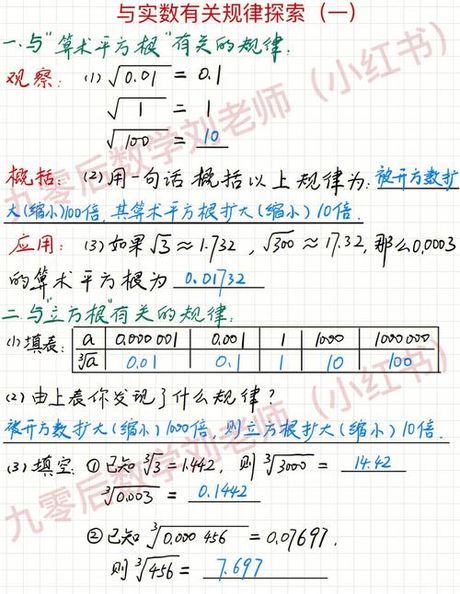 与实数有关规律探索（一）
一.与"算术平方根"有关的规律.
观察: (1) √0.01 = 0.1
√1 = 1
√100 = 10
概括: (2)用一句话概括以上规律为: 被开方数扩
大(缩小)100倍,其算术平方根扩大(缩小)10倍.
应用: (3)如果√3≈1.732, √300≈17.32,那么0.0003
的算术平方根为 0.01732
二.与"立方根"有关的规律.
(1)填表: a 0.000 001 0.001 1 1000 1000 000
∛a 0.01 0.1 1 10 100
(2)由上表你发现了什么规律?
被开方数扩大(缩小)1000倍,则立方根扩大(缩小)10倍.
(3)填空: ①已知∛3=1.442, 则∛3000 = 14.42
∛0.003 = 0.1442
②已知∛0.000 456 = 0.07697.
则∛456 = 7.697
九零后数学刘老师（小红书）
九零后数学刘老师（小红书）